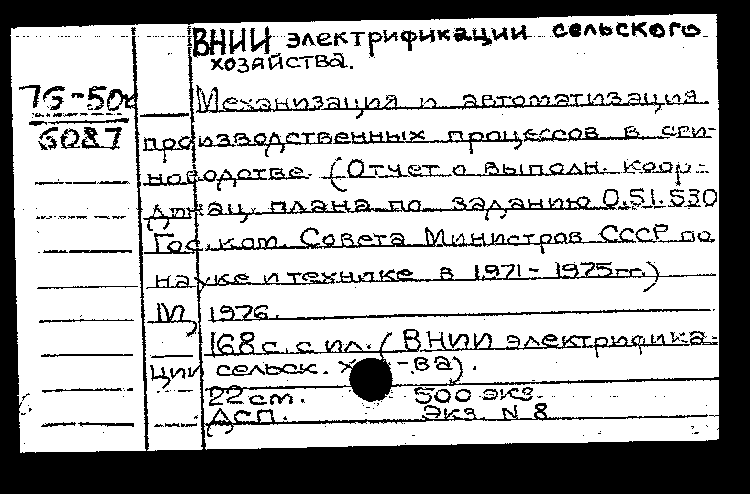 ВНИИ электрификации сельского
хозяйства.
76-50к
6087
Механизация и автоматизация
производственных процессов в сви-
новодстве. (Отчет о выполн. коор-
динац. плана по заданию 0.51.530
Гос. ком. Совета Министров СССР по
науке и технике в 1971-1975гг.)
М, 1976.
168 с. с ил. (ВНИИ электрифика-
ции сельск. х -ва).
22 см. 500 экз.
ДСП. Экз N 8